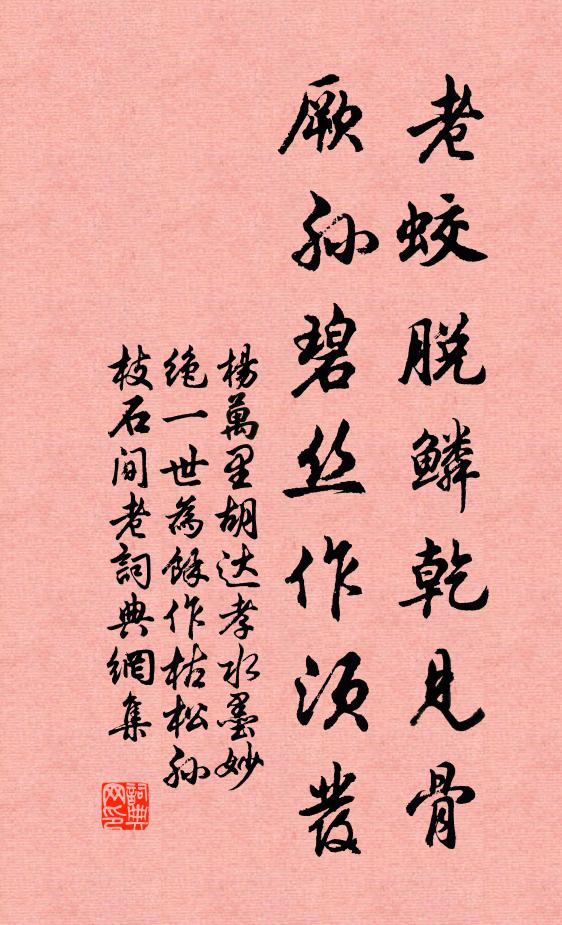 老蛟脱鳞乾見骨
厥孙碧丝作须發
楊萬里胡达孝水墨妙
绝一世為餘作枯松孙
枝石间老詞典網集
詞典网印